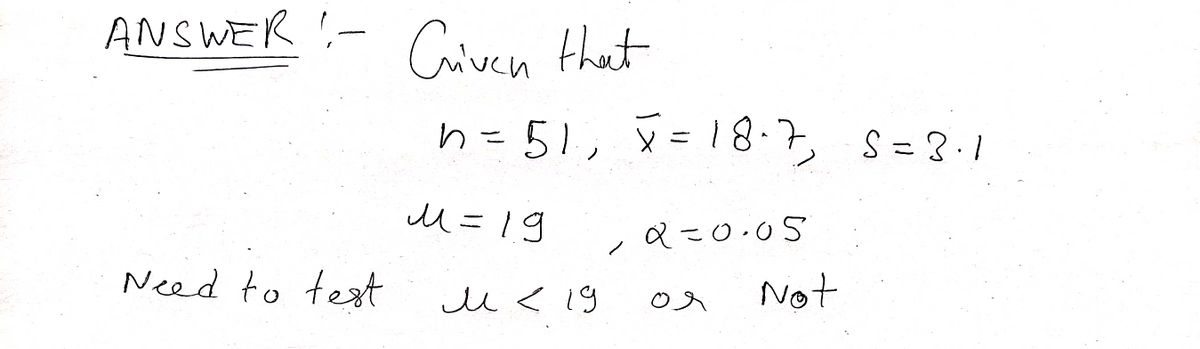 ANSWER :- Given that
n = 51, x̄ = 18.7, S = 3.1
μ = 19 , α = 0.05
Need to test μ < 19 or Not